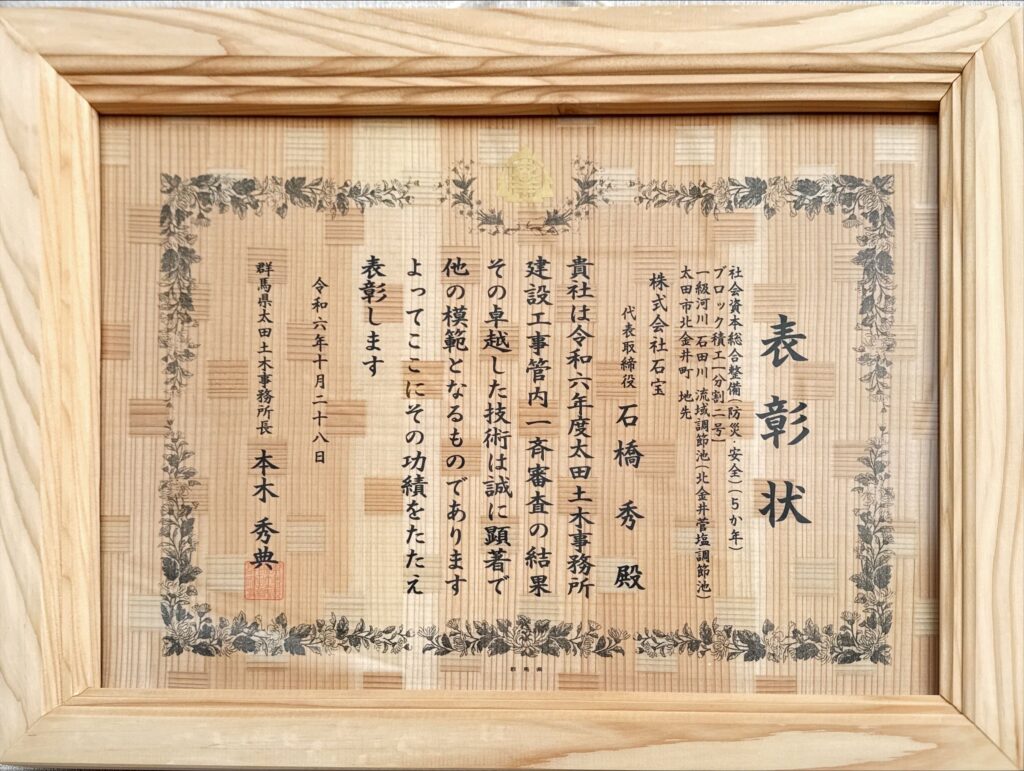 表彰状
社会資本総合整備(防災・安全)(5か年)
ブロック積工(分割二号)
一級河川 石田川 流域調節池(北金井菅塩調節池)
太田市北金井町 地先
株式会社石宝
代表取締役 石橋 秀 殿
貴社は令和六年度太田土木事務所
建設工事管内一斉審査の結果
その卓越した技術は誠に顕著で
他の模範となるものであります
よってここにその功績をたたえ
表彰します
令和六年十月二十八日
群馬県太田土木事務所長 本木 秀典
群馬県